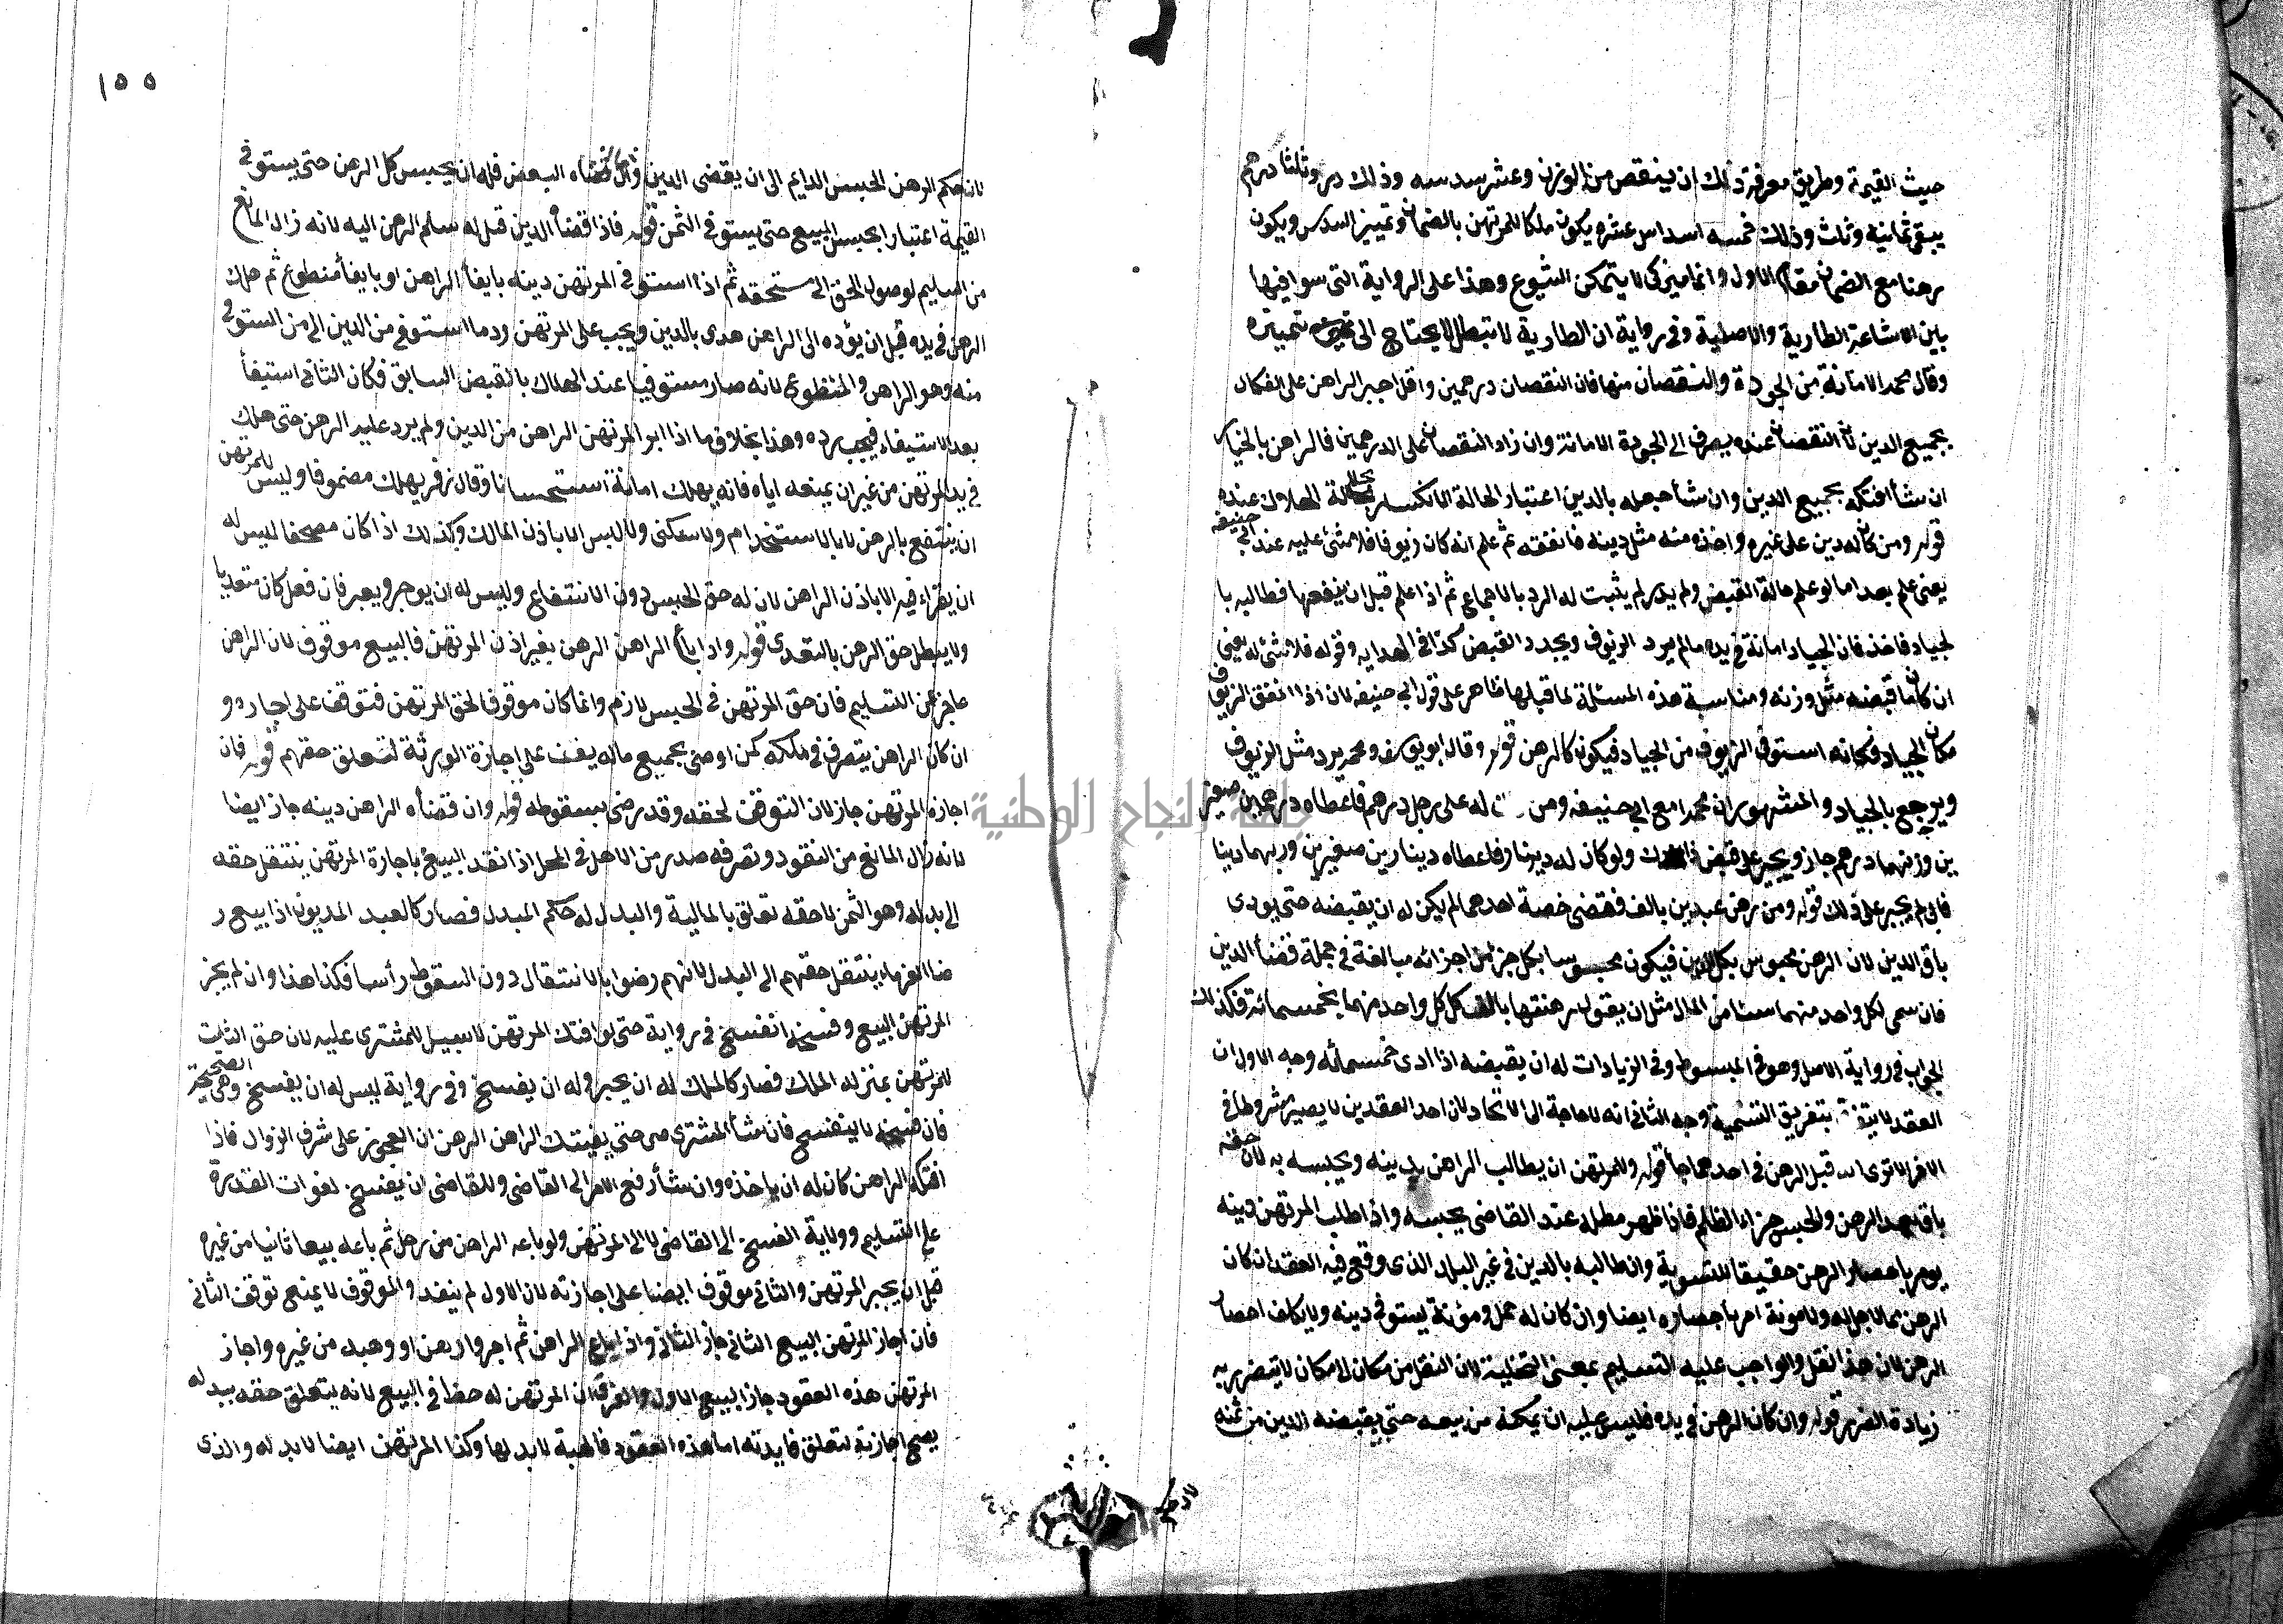 حيث القيمة وطريق معرفة ذلك ان ينقص من الوزن وعشر سدسه وذلك درهم وثلثا درهم
يبقى ثمانية وثلث وذلك خمسه اسداس عشره يكون ملكا للمرتهن بالضمان وتمييز السدس ويكون
رهنا مع الضمان مقام الاول وانما ميز كى لا يتمكن الشيوع وهذا على الرواية التى سوا فيها
بين الاشاعة الطارية والاصلية وفى رواية ان الطارية لا تبطل لا يحتاج الى تمييزه
وقال محمد الامانة من الجودة والنقصان منها فان النقصان درهمين واقل اجبر الراهن على الفكاك
بجميع الدين لان النقصان عنده يصرف الى الجودة الامانة وان زاد النقصان على الدرهمين فالراهن بالخيار
ان شأ افتكه بجميع الدين وان شأ جعله بالدين اعتبار الحالة الانكسار بحالة الهلاك عنده
قوله ومن كان له دين على غيره واخذ منه مثل دينه فانفقه ثم علم انه كان زيوفا فلا شئ عليه عند ابى حنيفه
يعنى علم بعد اما لو علم حالة القبض ولم يرد لم يثبت له الرد بالاجماع ثم اذا علم قبل ان ينفقها فطالبه با
لجياد فاخذ فان الجياد امانة فى يده مالم يرد الزيوف ويجدد القبض كذا فى الهدايه وقوله فلا شئ له يعنى
ان كان ما قبضه مثل وزنه ومناسبة هذه المسئلة لما قبلها ظاهر على قول ابى حنيفه لان اذا انفق الزيوف
مكان الجياد فكانه استوفى الزيوف من الجياد فيكون كالرهن قوله وقال ابو يوسف ومحمد يرد مثل الزيوف
ويرجع بالجياد والمشهور ان محمدا مع ابى حنيفه ومن له على رجل درهم فاعطاه درهمين صغير
ين وزنهما درهم جاز ويجبر على قبض ذلك ولو كان له دينار فاعطاه دينارين صغيرين وزنهما دينار
فابى لم يجبر على ذلك قوله ومن رهن عبدين بالف فقضى حصة احدهما لم يكن له ان يقبضه حتى يودى
باقى الدين لان الرهن محبوس بكل الدين فيكون محبوسا بكل جزء من اجزائه مبالغة فى حملة قضأ الدين
فان سمى لكل واحد منهما شئا من المال مثل ان يقول رهنتها بالف كل كل واحد منهما بخمسمائة فكذلك
الجواب فى رواية الاصل وهو فى المبسوط وفى الزيادات له ان يقبضه اذا ادى خمسمائه وجه الاول ان
العقد لا يتفرق بتفريق التسمية وجه الثانى انه لا حاجة الى الاتحاد لان احد العقدين لا يصير مشروطا فى
الاخر الا ترى انه قبل الرهن فى احدهما جأ قوله وللمرتهن ان يطالب الراهن بدينه ويحبسه به لان حقه
باق بعد الرهن والحبس جزاء الظلم فاذا ظهر مطله عند القاضى يحبسه واذا طلب المرتهن دينه
يومر باحضار الرهن حقيقا للتسوية وان طالبه بالدين فى غير البلد الذى وقع فيه العقد ان كان
الرهن مما لا حمل له ولا مونة امر باحضاره ايضا وان كان له حمل ومؤنة يستوفى دينه ولا يكلف احضار
الرهن لان هذا نقل والواجب عليه التسليم بمعنى التخلية لان النقل من مكان الى مكان لا يتضرر به
زيادة الضرر قوله وان كان الرهن فى يده فليس عليه ان يمكنه من بيعه حتى يقبضه الدين من ثمنه
لان حكم
١٥٥
لان حكم الرهن الحبس الدايم الى ان يقضى الدين وان قضاه البعض فله ان يحبس كل الرهن حتى يستوفى
القيمة اعتبارا بحبس المبيع حتى يستوفى الثمن قوله فاذا قضأه الدين قيل له سلم الرهن اليه لانه زال المانع
من التسليم لوصول الحق الى مستحقه ثم اذا استوفى المرتهن دينه بايفأ الراهن او بايفأ متطوع ثم هلك
الرهن فى يده قبل ان يؤده الى الراهن هدى بالدين ويجب على المرتهن رد ما استوفى من الدين الى من استوفى
منه وهو الراهن والمتطوع لانه صار مستوفيا عند الهلاك بالقبض السابق فكان الثانى استيفأ
بعد الاستيفاء فيجب رده وهذا بخلاف ما اذا ابرا المرتهن الراهن من الدين ولم يرد عليه الرهن حتى هلك
فى يد المرتهن من غير ان يمنعه اياه فانه يهلك امانة استحسانا وقال زفر يهلك مضمونا وليس للمرتهن
ان ينتفع بالرهن لا بالاستخدام ولا سكنى ولا لبس الا باذن المالك وكذلك اذا كان مصحفا ليس له
ان يقراء فيه الا باذن الراهن لان له حق الحبس دون الانتفاع وليس له ان يوجر ويعير فان فعل كان متعديا
ولا يبطل حق الرهن بالتعدى قوله واذا باع الراهن الرهن بغير اذن المرتهن فالبيع موقوف لان الراهن
عاجز عن التسليم فان حق المرتهن فى الحبس لازم وانما كان موقوفا لحق المرتهن فتوقف على اجازه و
ان كان الراهن يتصرف فى ملكه كمن اوصى بجميع ماله يقف على اجازة الورثة لتعلق حقهم قوله فان
اجازه المرتهن جاز لان التوقف لحقه وقد رضى بسقوطه قوله وان قضأه الراهن دينه جاز ايضا
لانه زال المانع من النفود وتصرفه صدر من الاهل فى المحل اذا نفد البيع باجازة المرتهن ينتقل حقه
الى بدله وهو الثمن لا حقه تعلق بالمالية والبدل له حكم المبدل فصار كالعبد المديون اذا بيع ر
ضا الغرماء ينتقل حقهم الى البدل لانهم رضوا بالانتقال دون السقوط رأسا فكذا هذا وان لم يجز
المرتهن البيع وفسخه انفسخ فى رواية حتى لو افتك المرتهن لا سبيل للمشترى عليه لان حق الثابت
للمرتهن بمنزله الملك فصار كالملك له ان يجبر وله ان يفسخ وفى رواية ليس له ان يفسخ وهى الصحيحة
فان فسخه لا ينفسخ فان شأ المشترى صبر حتى يفتك الراهن الرهن ان العجز على شرف الزوال فاذا
افتكه الراهن كان له ان ياخذه وان شأ رفع الامر الى القاضى وللقاضى ان يفسخ لفوات القدرة
على التسليم وولاية الفسخ الى القاضى لا الى المرتهن ولو باعه الراهن من رجل ثم باعه بيعا ثانيا من غيره
قبل ان يجبر المرتهن والثانى موقوف ايضا على اجازته لان الاول لم ينفد والموقوف لا يمنع توقف الثانى
فان اجاز المرتهن البيع الثانى جاز الثانى واذا باع الراهن ثم اجر وا رهن او وهبه من غيره واجاز
المرتهن هذه العقود جاز البيع الاول والفرق ان المرتهن له حظ فى البيع لانه يتعلق حقه ببدله
يصح اجازته لتعلق فايدته اما هذه العقود فالهبة لا بدل لها وكذا المرتهن ايضا لا بدله والذى
جامعة النجاح الوطنية